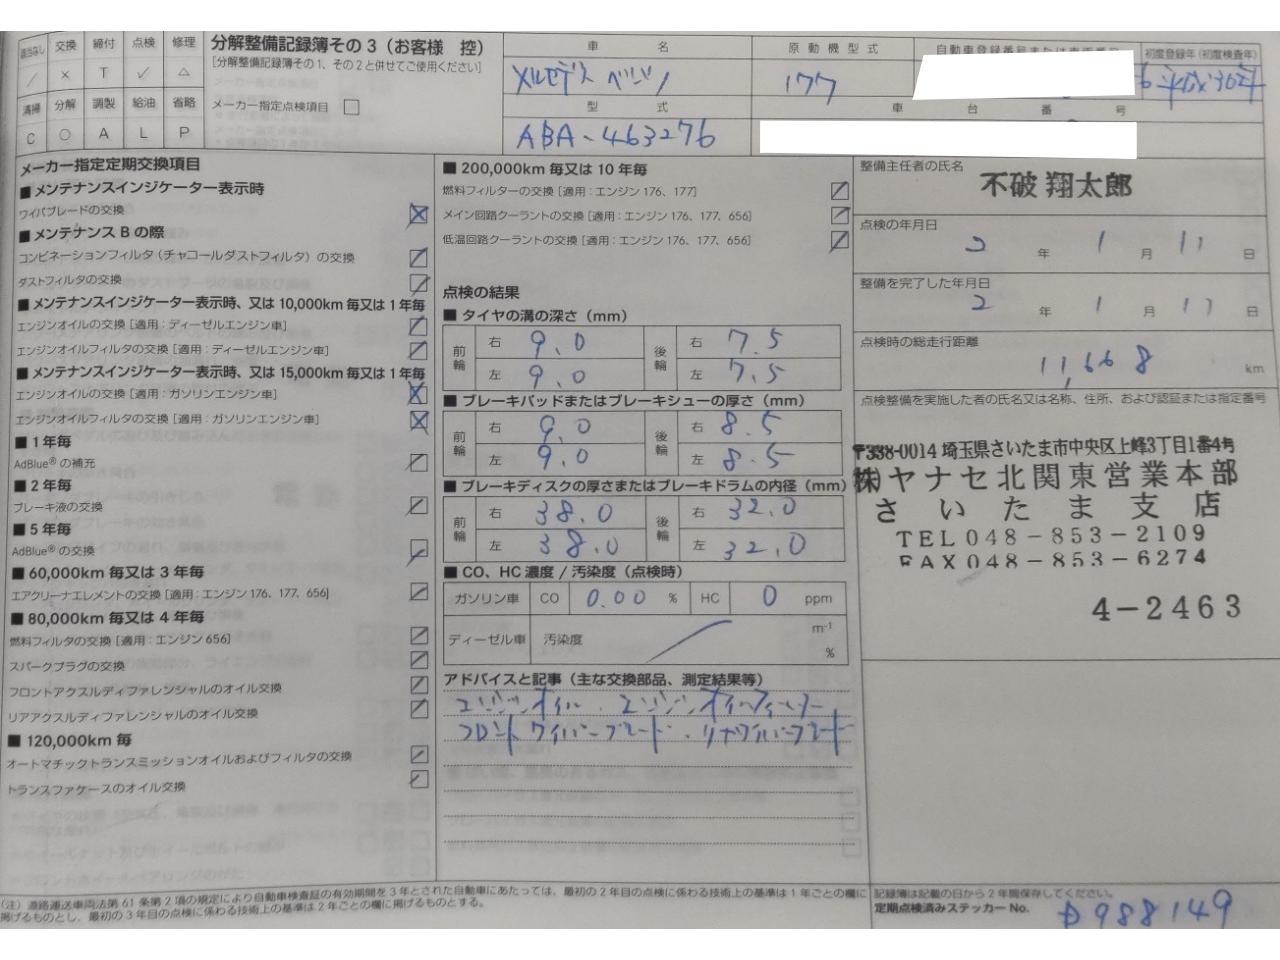 該当なし 交換 締付 点検 修理
／ × T ✓ △
清掃 分解 調製 給油 省略
C ○ A L P
分解整備記録簿その3（お客様 控）
［分解整備記録簿その1、その2と併せてご使用ください］
メーカー指定点検項目 □
車 名 原動機型式 初度登録年（初度検査年）
メルセデス ベンツ 177 平成30年
型 式 車 台 番 号
ABA-463276
メーカー指定定期交換項目
■ メンテナンスインジケーター表示時
ワイパブレードの交換
■ メンテナンス B の際
コンビネーションフィルタ（チャコールダストフィルタ）の交換
ダストフィルタの交換
■ メンテナンスインジケーター表示時、又は 10,000km 毎又は 1 年毎
エンジンオイルの交換［適用：ディーゼルエンジン車］
エンジンオイルフィルタの交換［適用：ディーゼルエンジン車］
■ メンテナンスインジケーター表示時、又は 15,000km 毎又は 1 年毎
エンジンオイルの交換［適用：ガソリンエンジン車］
エンジンオイルフィルタの交換［適用：ガソリンエンジン車］
■ 1 年毎
AdBlue® の補充
■ 2 年毎
ブレーキ液の交換
■ 5 年毎
AdBlue® の交換
■ 60,000km 毎又は 3 年毎
エアクリーナエレメントの交換［適用：エンジン 176、177、656］
■ 80,000km 毎又は 4 年毎
燃料フィルタの交換［適用：エンジン 656］
スパークプラグの交換
フロントアクスルディファレンシャルのオイル交換
リアアクスルディファレンシャルのオイル交換
■ 120,000km 毎
オートマチックトランスミッションオイルおよびフィルタの交換
トランスファケースのオイル交換
■ 200,000km 毎又は 10 年毎
燃料フィルターの交換［適用：エンジン 176、177］
メイン回路クーラントの交換［適用：エンジン 176、177、656］
低温回路クーラントの交換［適用：エンジン 176、177、656］
点検の結果
■ タイヤの溝の深さ（mm）
前輪 右 9.0 後輪 右 7.5
左 9.0 左 7.5
■ ブレーキパッドまたはブレーキシューの厚さ（mm）
前輪 右 9.0 後輪 右 8.5
左 9.0 左 8.5
■ ブレーキディスクの厚さまたはブレーキドラムの内径（mm）
前輪 右 38.0 後輪 右 32.0
左 38.0 左 32.0
■ CO、HC 濃度 / 汚染度（点検時）
ガソリン車 CO 0.00 % HC 0 ppm
ディーゼル車 汚染度 m⁻¹
%
アドバイスと記事（主な交換部品、測定結果等）
エンジンオイル、エンジンオイルフィルター
フロントワイパーブレード、リヤワイパーブレード
整備主任者の氏名
不破 翔太郎
点検の年月日
2 年 1 月 11 日
整備を完了した年月日
2 年 1 月 11 日
点検時の総走行距離
11,668 km
点検整備を実施した者の氏名又は名称、住所、および認証または指定番号
〒338-0014 埼玉県さいたま市中央区上峰3丁目1番4号
㈱ヤナセ北関東営業本部
さいたま支店
TEL 048-853-2109
FAX 048-853-6274
4-2463
（注）道路運送車両法第 61 条第 2 項の規定により自動車検査証の有効期間を 3 年とされた自動車にあたっては、最初の 2 年目の点検に係わる技術上の基準は 1 年ごとの欄に
掲げるものとし、最初の 3 年目の点検に係わる技術上の基準は 2 年ごとの欄に掲げるものとする。
記録簿は記載の日から 2 年間保存してください。
定期点検済みステッカー No. D988149